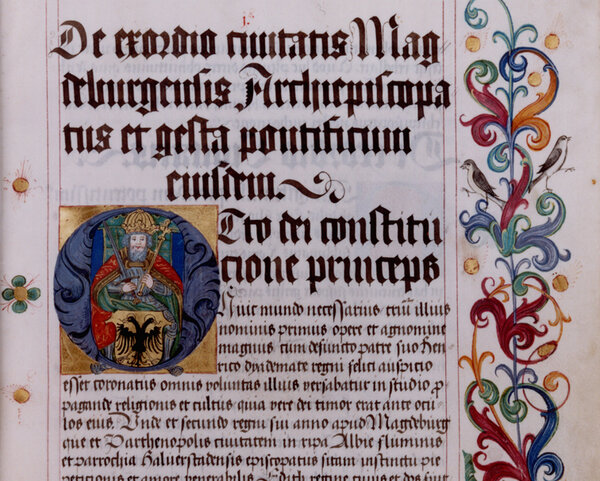 1.
De exordio ciuitatis Mag
deburgensis Archiepiscopa
tus et gesta pontificum
eiusdem.
Otto dei constitu
cione princeps
huic mundo necessarius eciam illius
nominis primus opere et agnomine
magnus cum defuncto patre suo Hen
rico diademate regni felici auspicio
esset coronatus omnis voluntas illius versabatur in studio p
pagande religionis et cultus quia vere dei timor erat ante ocu
los eius. Unde et secundo regni sui anno apud Magdeburg
que et Parthenopolis ciuitatem in ripa Albie fluminis
et parrochia Haluerstadensis episcopatus sitam instinctu pie
peticionis et amore venerabilis Edith regine ciuis et dos fuit